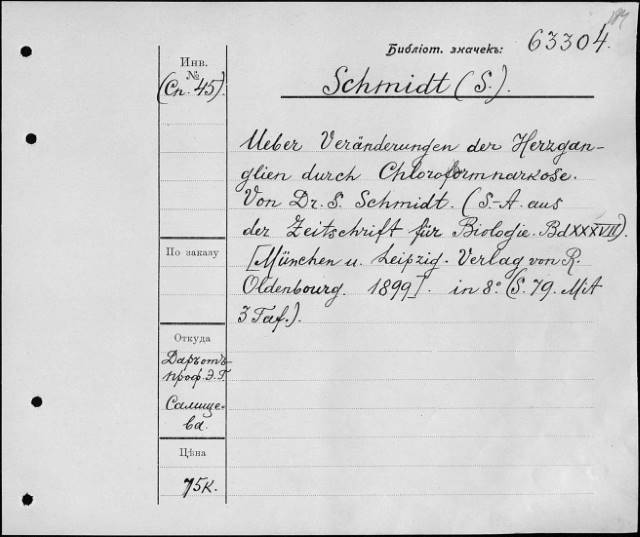 Библіот. значекъ: 63304.
Инв.
№
(Сп. 45).
Schmidt (S.).
Ueber Veränderungen der Herzgan-
glien durch Chloroformnarkose.
Von Dr. S. Schmidt. (S.-A. aus
der Zeitschrift für Biologie. Bd XXXVII).
[München u. Leipzig. Verlag von R.
Oldenbourg. 1899]. in 8° (S. 79. Mit
3 Taf.).
По заказу
Откуда
Даръ отъ
проф. Э.Г.
Салище-
ва.
Цѣна
75 к.